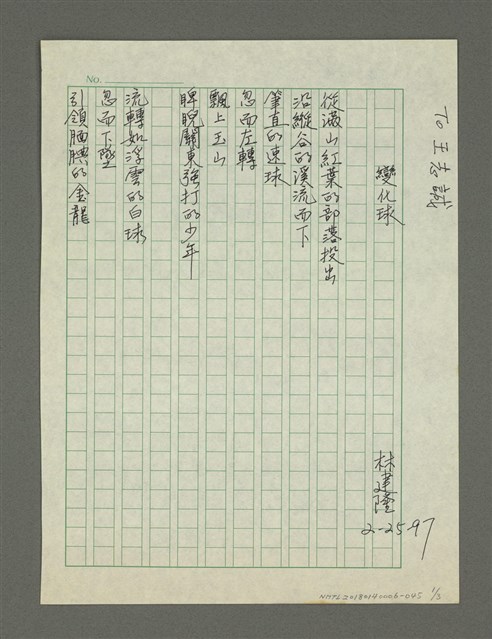 To 王志誠
變化球
林建隆
2-25-97
從滿山紅葉的部落投出
沿縱谷的溪流而下
筆直的速球
忽而左轉
飄上玉山
睥睨關東強打的少年
流轉如浮雲的白球
忽而下墜
引領膃膊的金龍
No.
NMTL20180140006-045 1/3